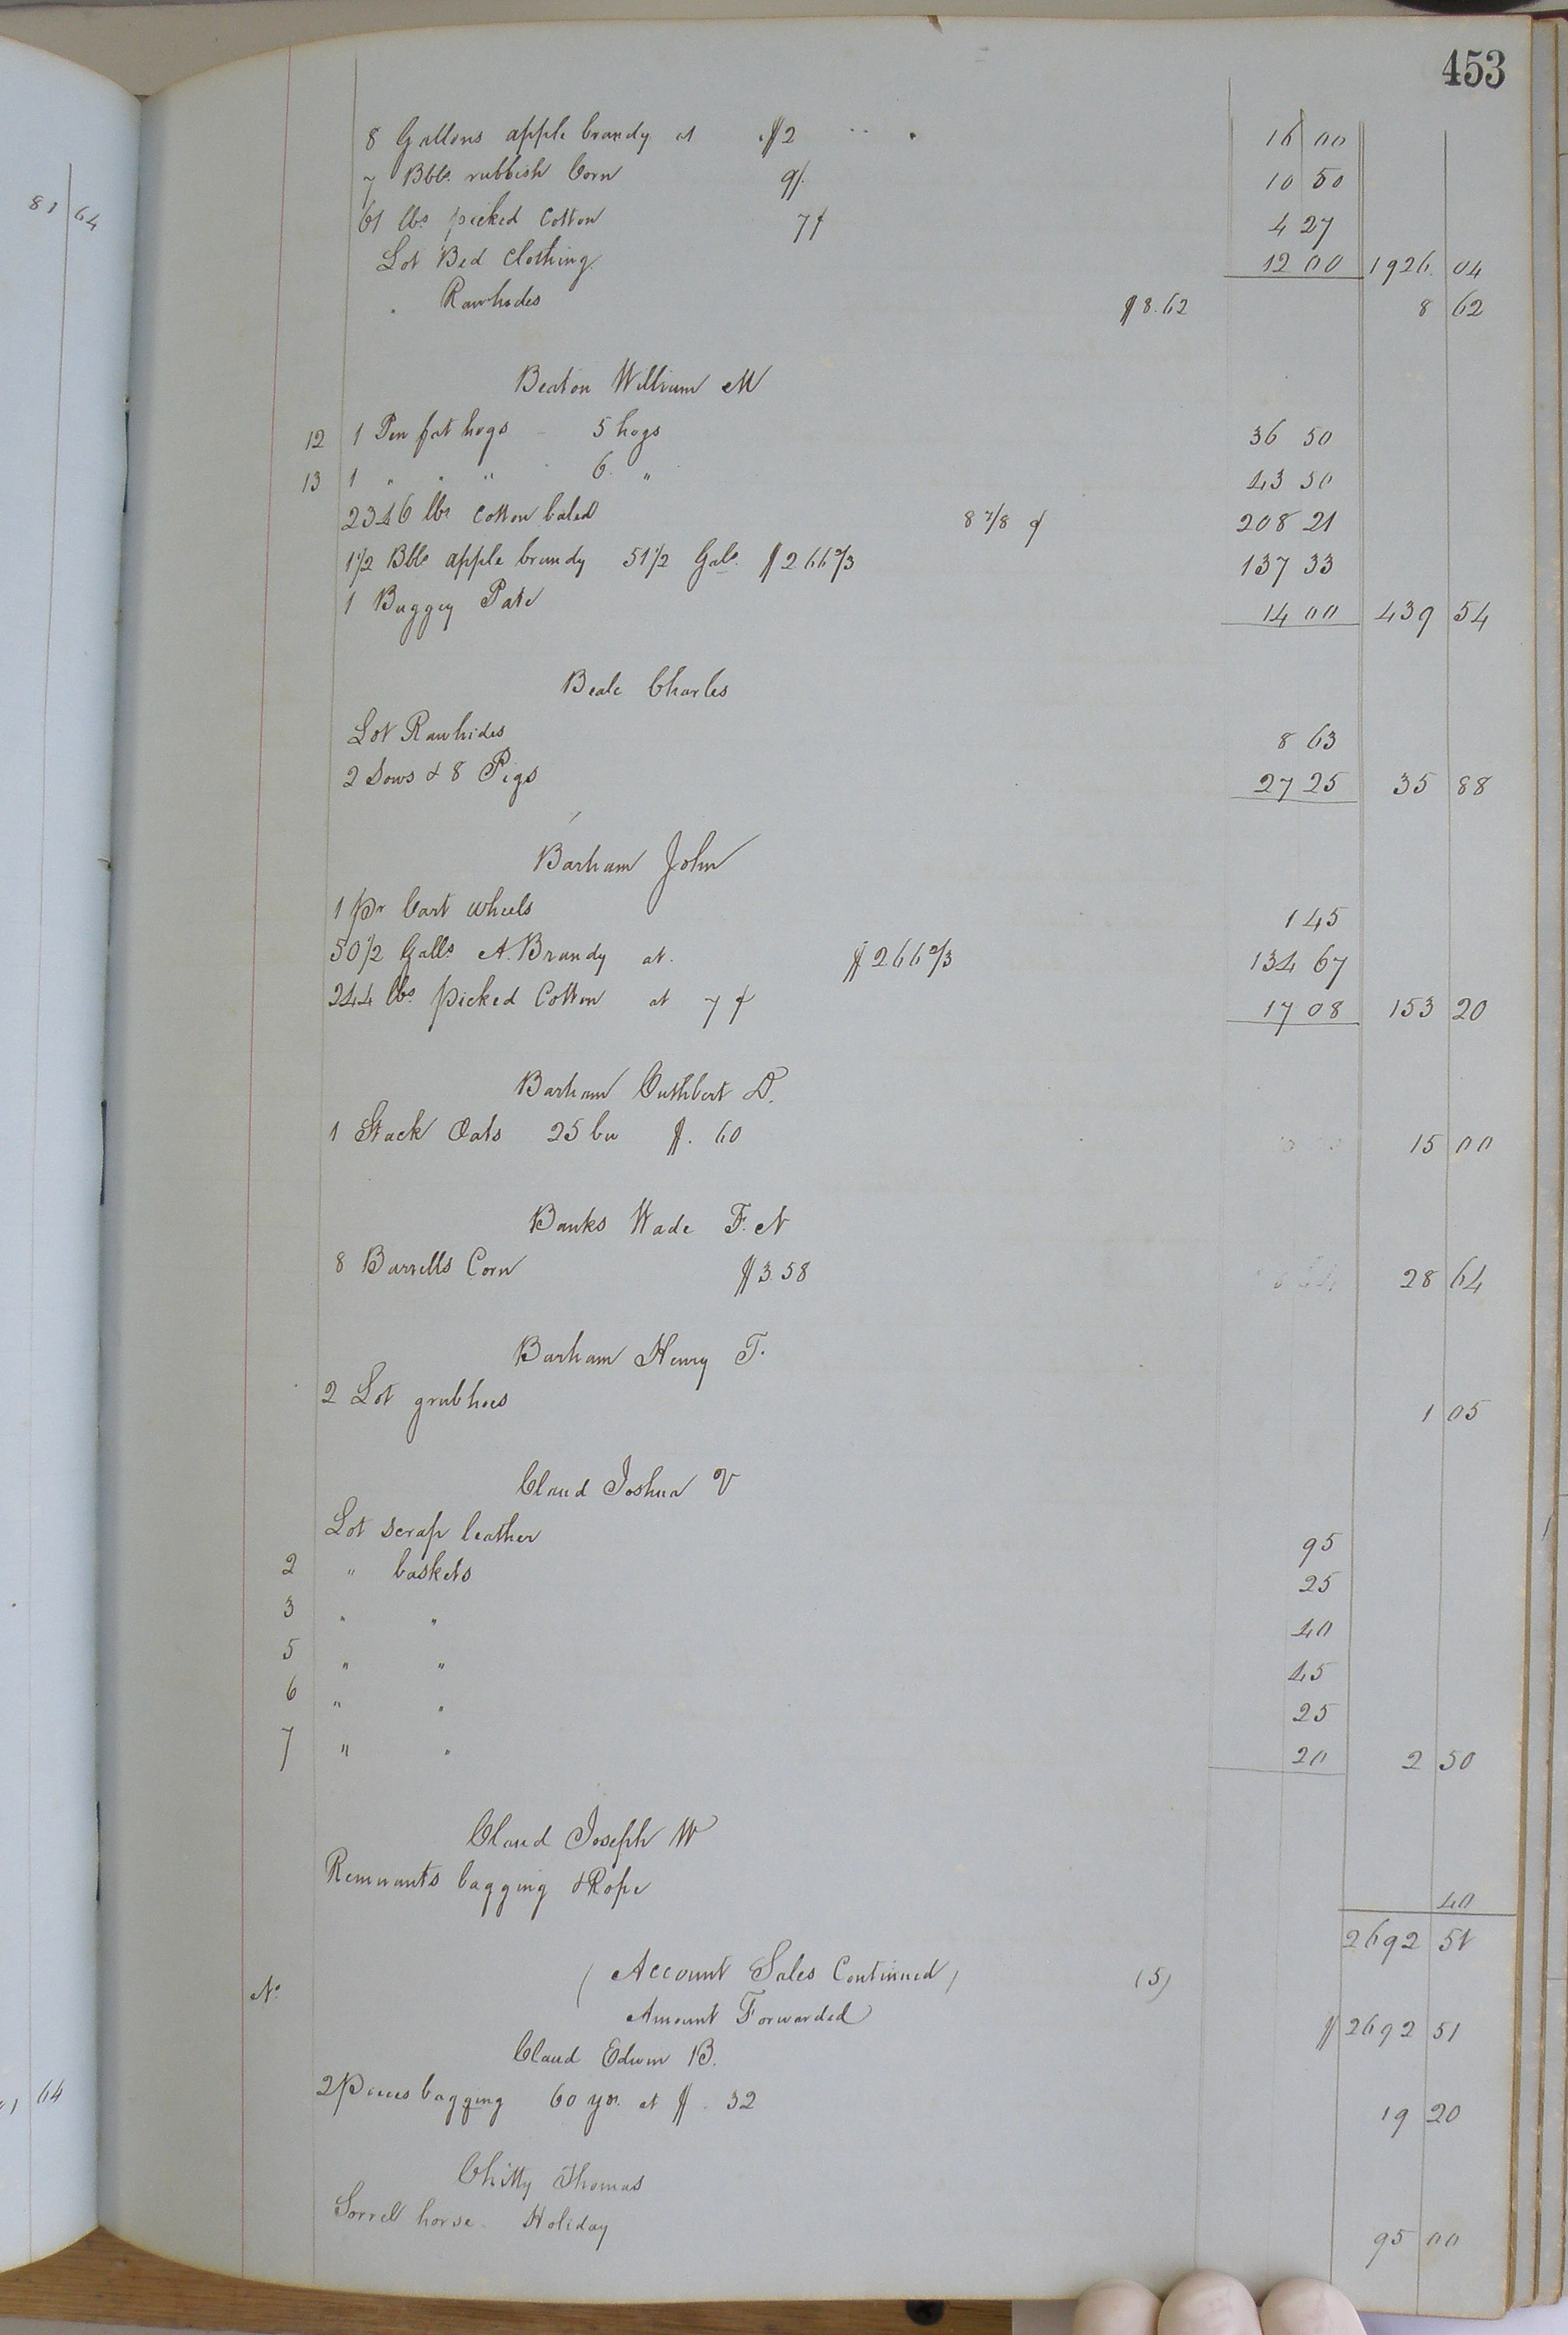 453
81 64
8 Gallons apple brandy at $2 16 00
7 Bbls. rubbish Corn 9/. 10 50
61 lbs picked Cotton 7¢ 4 27
Lot Bed Clothing. 12 00 1926. 04
" Rawhides $8.62 8 62
Beaton William M
12 1 Pen fat hogs 5 hogs 36 50
13 1 " " " 6 " 43 50
2346 lbs Cotton baled 8 7/8 ¢ 208 21
1 1/2 Bbls apple brandy 51 1/2 Gals. $2 66 2/3 137 33
1 Buggy Pate 14 00 439 54
Beale Charles
Lot Rawhides 8 63
2 Sows & 8 Pigs 27 25 35 88
Barham John
1 pr Cart Wheels 1 45
50 1/2 Galls A. Brandy at. $2 66 2/3 134 67
244 lbs picked Cotton at 7 ¢ 17 08 153 20
Barham Cuthbert D.
1 Stack Oats 25 bu $. 60 15 00
Banks Wade F. N
8 Barrells Corn $3.58 28 64
Barham Henry T.
2 Lot grubhoes 1 05
Claud Joshua V
Lot scrap leather 95
2 " baskets 25
3 " " 40
5 " " 45
6 " " 25
7 " " 20 2 50
Claud Joseph W
Remnants bagging & Rope 40
2692 51
No. (Account Sales Continued) (5)
Amount Forwarded $2692 51
Claud Edwin B.
2 Pieces bagging 60 yds. at $ . 32 19 20
Chitty Thomas
Sorrell horse Holiday 95 00
64